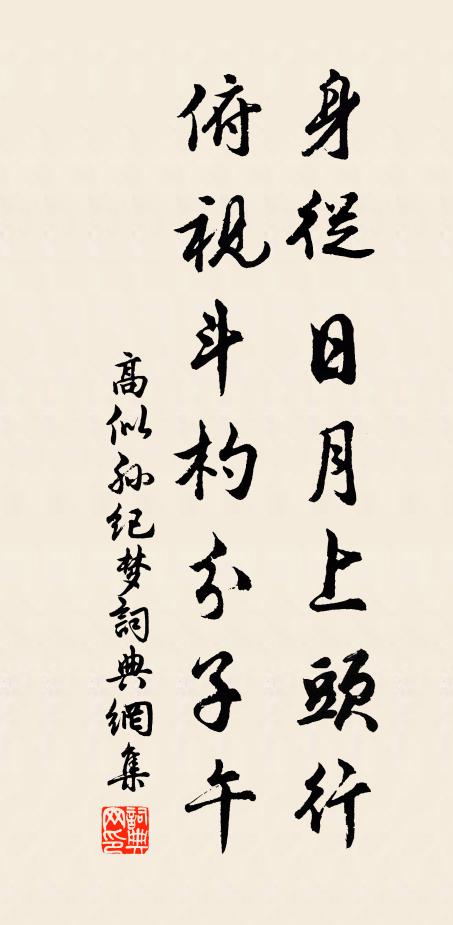 身從日月上頭行
俯視斗杓分子午
高似孙纪梦詞典網集
詞典網印